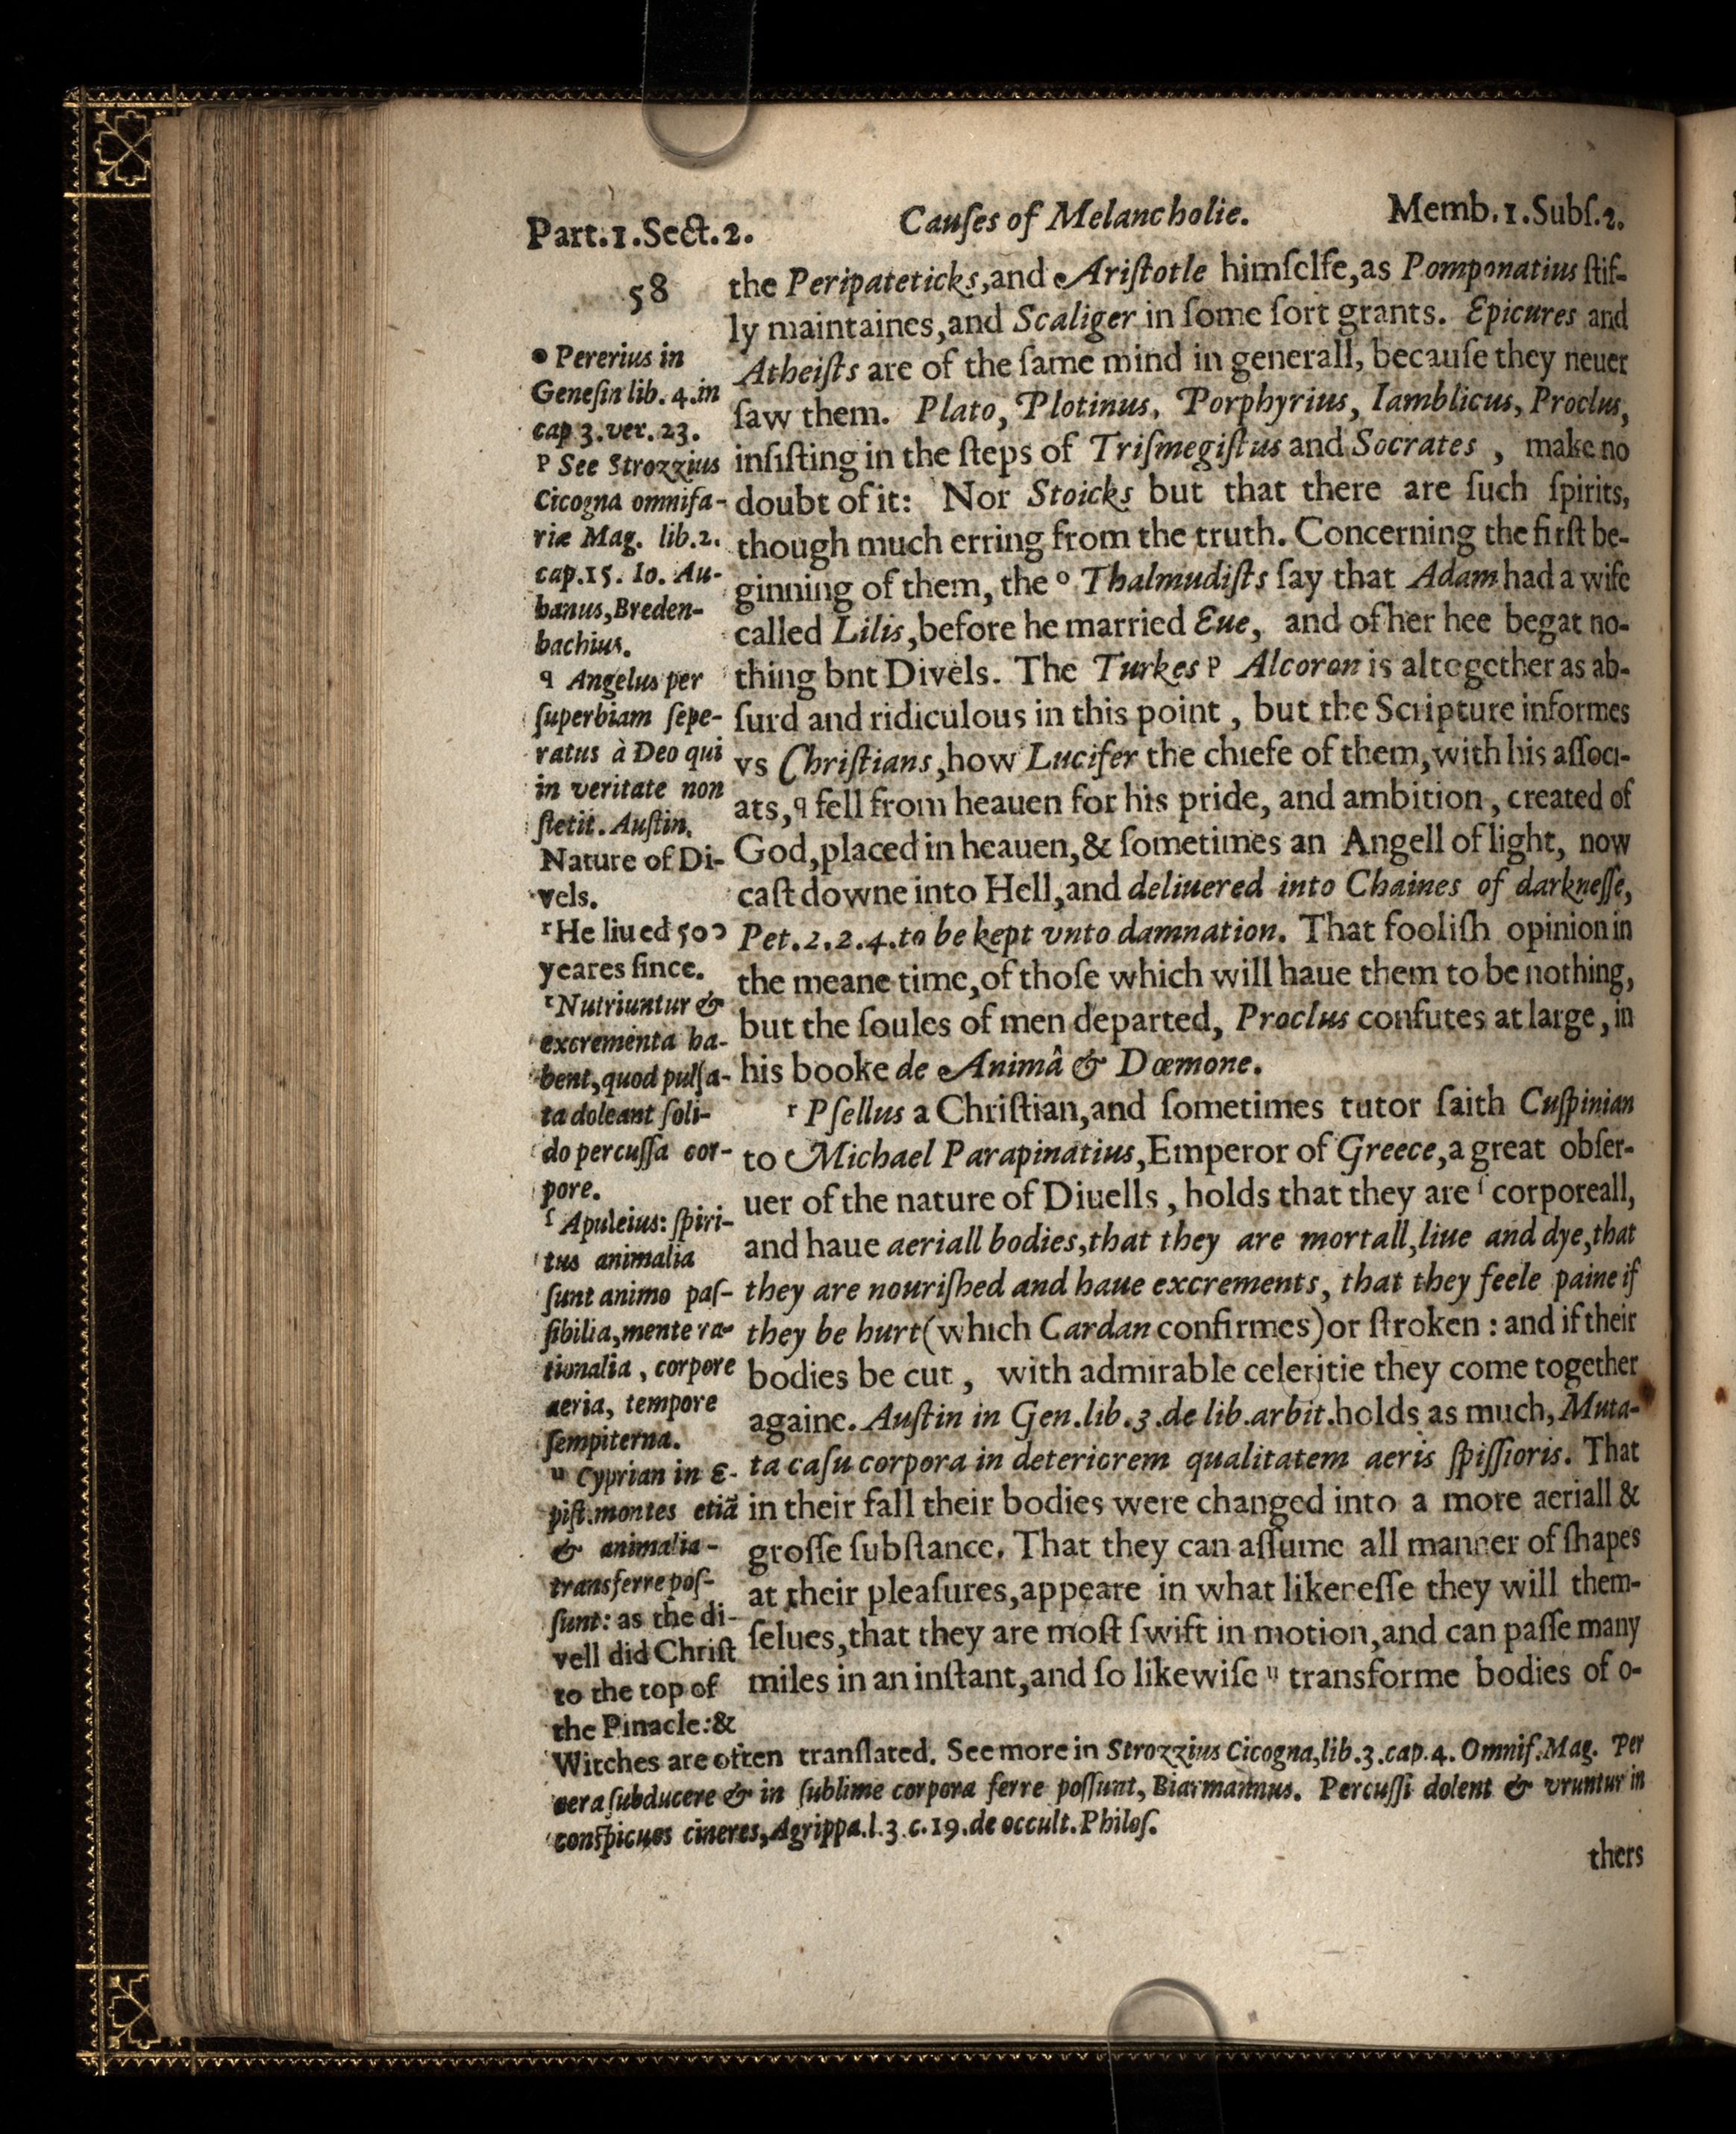 Part.1.Sect.2. Cauſes of Melancholie. Memb.1.Subſ.2.
58
the Peripateticks,and Ariſtotle himſelfe,as Pomponatius ſtif-
ly maintaines,and Scaliger in ſome ſort grants. Epicures and
Atheiſts are of the ſame mind in generall, becauſe they neuer
ſaw them. Plato, Plotinus, Porphyrius, Iamblicus, Proclus,
inſiſting in the ſteps of Triſmegiſtus and Socrates , make no
doubt of it: Nor Stoicks but that there are ſuch ſpirits,
though much erring from the truth. Concerning the firſt be-
ginning of them, the o Thalmudiſts ſay that Adam had a wife
called Lilis,before he married Eue, and of her hee begat no-
thing bnt Divels. The Turkes p Alcoron is altogether as ab-
ſurd and ridiculous in this point , but the Scripture informes
vs Chriſtians,how Lucifer the chiefe of them,with his aſſoci-
ats,q fell from heauen for his pride, and ambition, created of
God,placed in heauen,& ſometimes an Angell of light, now
caſt downe into Hell,and deliuered into Chaines of darkneſſe,
Pet.2.2.4.to be kept vnto damnation. That fooliſh opinion in
the meane time,of thoſe which will haue them to be nothing,
but the ſoules of men departed, Proclus confutes at large, in
his booke de Animâ & Dæmone.
r Pſellus a Chriſtian,and ſometimes tutor ſaith Cuſpinian
to Michael Parapinatius,Emperor of Greece,a great obſer-
uer of the nature of Diuells, holds that they are ſ corporeall,
and haue aeriall bodies,that they are mortall,liue and dye,that
they are nouriſhed and haue excrements, that they feele paine if
they be hurt(which Cardan confirmes)or ſtroken : and if their
bodies be cut , with admirable celeritie they come together
againe. Auſtin in Gen.lib.3.de lib.arbit.holds as much, Muta-
ta caſu corpora in deteriorem qualitatem aeris ſpiſſioris. That
in their fall their bodies were changed into a more aeriall &
groſſe ſubſtance. That they can aſſume all manner of ſhapes
at their pleaſures,appeare in what likeneſſe they will them-
ſelues,that they are moſt ſwift in motion,and can paſſe many
miles in an inſtant,and ſo likewiſe u transforme bodies of o-
o Pererius in
Geneſin lib. 4.in
cap 3.ver. 23.
p See Strozzius
Cicogna omnifa-
riæ Mag. lib.2.
cap.15. Io. Au-
banus,Breden-
bachius.
q Angelus per
ſuperbiam ſepe-
ratus à Deo qui
in veritate non
ſtetit. Auſtin.
Nature of Di-
vels.
r He liued 500
yeares ſince.
t Nutriuntur &
excrementa ha-
bent,quod pulſa-
ta doleant ſoli-
do percuſſa cor-
pore.
ſ Apuleius: ſpiri-
tus animalia
ſunt animo paſ-
ſibilia,mente ra-
tionalia, corpore
aeria, tempore
ſempiterna.
u Cyprian in E-
piſt.montes etiã
& animalia-
transferre poſ-
ſunt: as the di-
vell did Chriſt
to the top of
the Pinacle:&
Witches are often tranſlated. See more in Strozzius Cicogna,lib.3.cap.4. Omnif.Mag. Per
aera ſubducere & in ſublime corpora ferre poſſunt, Biarmannus. Percuſſi dolent & vruntur in
conſpicuos cineres,Agrippa.l.3.c.19.de occult.Philoſ.
thers